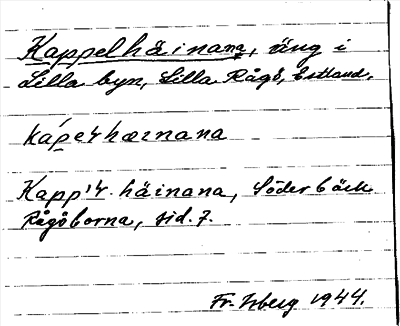 Kappelhäinana, äng i
Lilla byn, Lilla Rågö, Estland.
kápeɫhæznana
Kapp'ɫ häinana, Söderbäck
Rågöborna, sid. 7.
Fr. Isberg 1944.